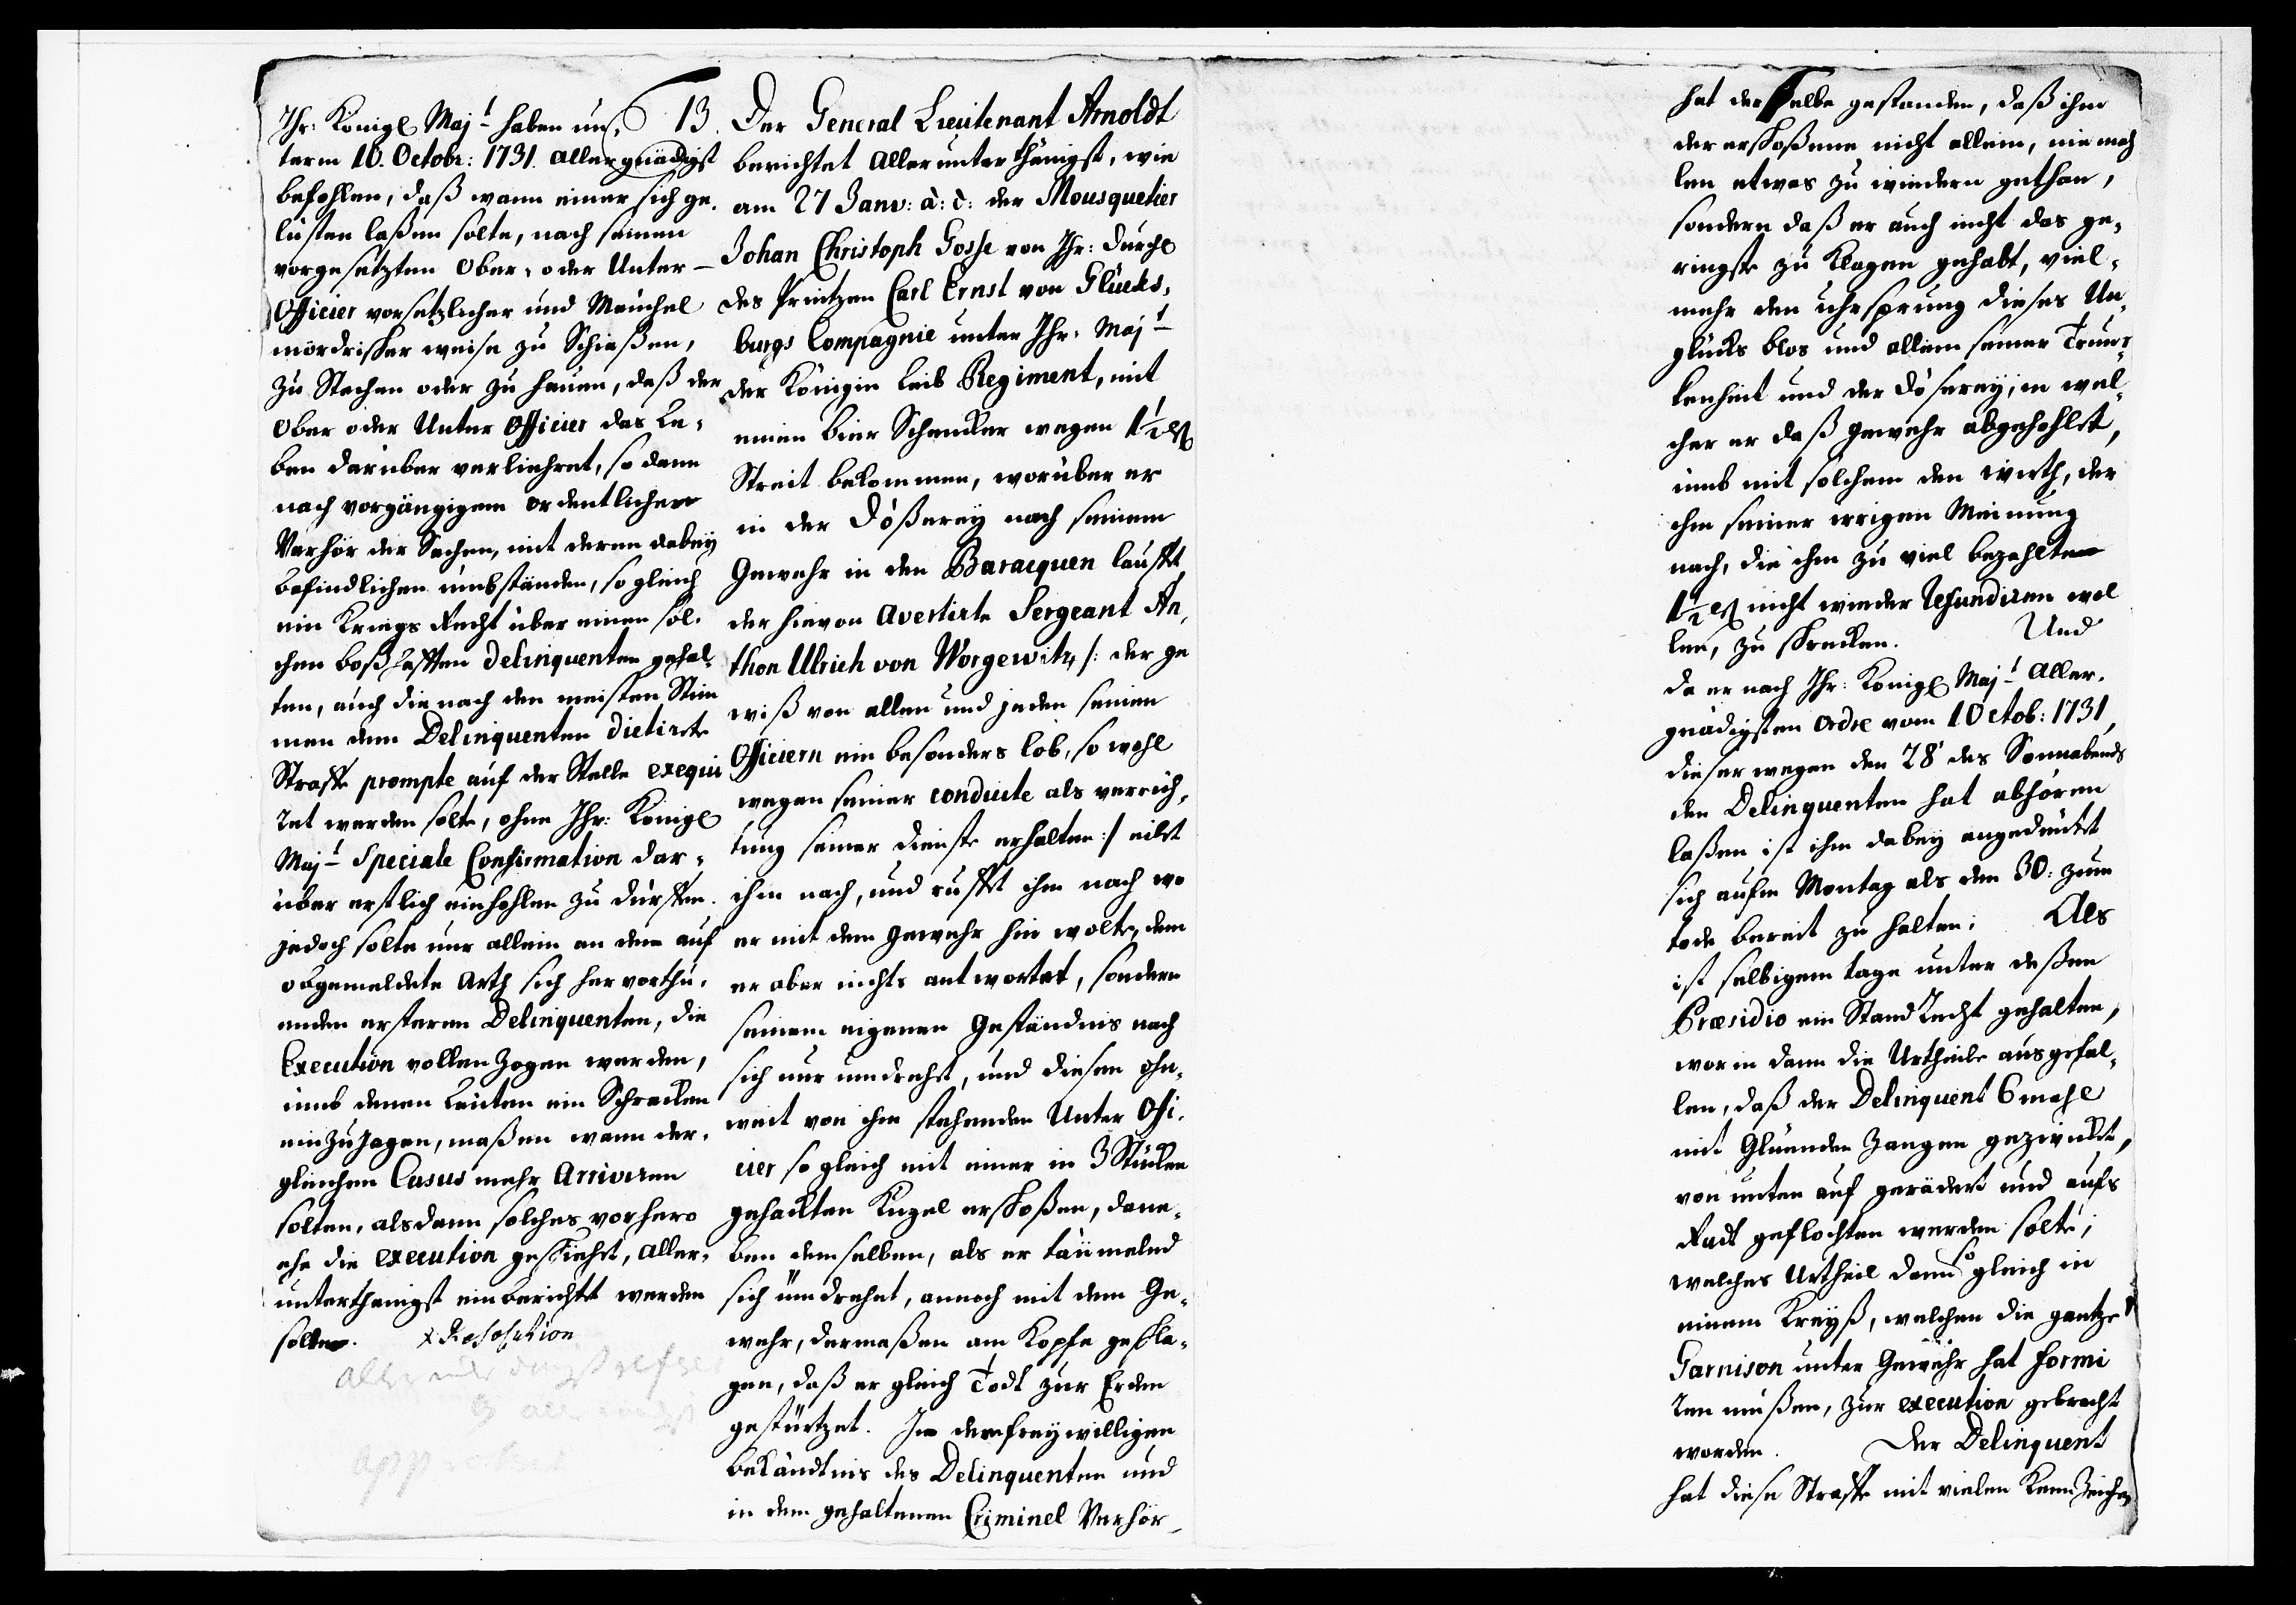 Ihr: Königl Majt haben un,
term 10. Octobr: 1731. allergnädigst
befohlen, daß wann einer sich ge,
lüsten laßen solte, nach seinen
vorgesetzten Ober, oder Unter-
Officier vorsetzlicher und Meuchel
mördrischer weise zu Schießen,
zu Stechen oder zu hauen, daß der
Ober oder Unter Officier das Le,
ben darüber verliehret, so dann
nach vorgängigem ordentlichen
Verhör der Sachen, mit deren dabey
befindlichen umbständen, so gleich
ein Kriegs Recht über einen sol,
chen boßhafften Delinquenten gehal,
ten, auch die nach den meisten Stim
men dem Delinquenten dictirte
Straffe prompte auf der Stelle exequi
ret werden solte, ohne Ihr: Königl
Majt Speciale Confirmation dar,
über erstlich einhohlen zu dürffen.
jedoch solte nur allein an dem auf
obgemeldete Arth sich hervorthu,
enden ersteren Delinquenten, die
Execution vollenzogen werden,
umb denen Leuten ein Schrecken
einzujagen, maßen wann der,
gleichen Casus mehr Arriviren
solten, alsdann solches vorhero
ehe die execution geschiehet, aller,
unterthänigst einberichtet werden
solten. x Resolution
13. Der General Lieutenant Arnoldt
berichtet Allerunterthänigst, wie
am 27 Janv: a: c: der Mousquetier
Johan Christoph Gosse von Ihr: Durchl
des Printzen Carl Ernst von Glücks,
burgs Compagnie unter Ihr: Majt
der Königin Leib Regiment, mit
einen bier Schencker wegen 1½ ß
Streit bekommen, worüber er
in der Dößerey nach seinem
Gewehr in den Baracquen laufft,
der hievon avertirte Sergeant An,
thon Ulrich von Worgewitz /: der ge
wiß von allen und jeden seinen
Officiern ein besonders lob, so wohl
wegen seiner conduite als verrich,
tung seiner Dienste erhalten :/ eilet
ihm nach, und rufft ihm nach wo
er mit dem Gewehr hin wolte, dem
er aber nichts antwortet, sondern
seinem eigenen Geständnis nach
sich nur umdrehet, und diesen ohn,
weit von ihm stehenden Unter Offi,
cier so gleich mit einer in 3 Stücken
gehackten Kugel erschoßen, dane,
ben demselben, als er taümelnd
sich ümdrehet, annoch mit dem Ge,
wehr, dermaßen am Kopfe geschla,
gen, daß er gleich Todt zur Erden
gestürtzet. In dem freywilligen
bekändtnis des Delinquenten und
in dem gehaltenen Criminel Verhör
hat derselbe gestanden, daß ihm
der erschoßene nicht allein, niemah
len etwas zu wiedern gethan,
sondern daß er auch nicht das ge,
ringste zu klagen gehabt, viel,
mehr den uhrsprung dieses Un,
glücks blos und allein seiner Trunc,
kenheit und der Döserey, in wel,
cher er daß gewehr abgehohlet,
umb mit solchem den wirth, der
ihm seiner irrigen Meinung
nach, die ihm zu viel bezahlten
1½ ß nicht wieder refundiren wol
len, zu schrecken. Und
da er nach Ihr: Königl Majt Aller,
gnädigsten Ordre vom 10 Octob: 1731,
dieserwegen den 28' des Sonnabends
den Delinquenten hat abhören
laßen ist ihm dabey angedeutet
sich aufm Montag als den 30: zum
tode bereit zu halten; Als
ist selbigem tage unter deßen
Præsidio ein StandRecht gehalten,
worin dann die Urtheile ausgefal,
len, daß der Delinquent 6 mahl
mit Glüenden Zangen gezwickt,
von unten auf gerädert und aufs
Radt geflochten werden solte;
welches Urtheil dann so gleich in
einem Kreyß, welchen die gantze
Garnison unter Gewehr hat formi
ren müßen, zur execution gebracht
worden. Der Delinquent
hat diese Straffe mit vielen KennZeichen